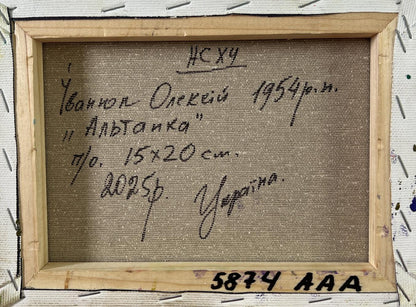 НСХУ
Іванюк Олексій 1954р.н.
„Альтанка"
п/о. 15х20см.
2025р. Україна.
5874 ААА